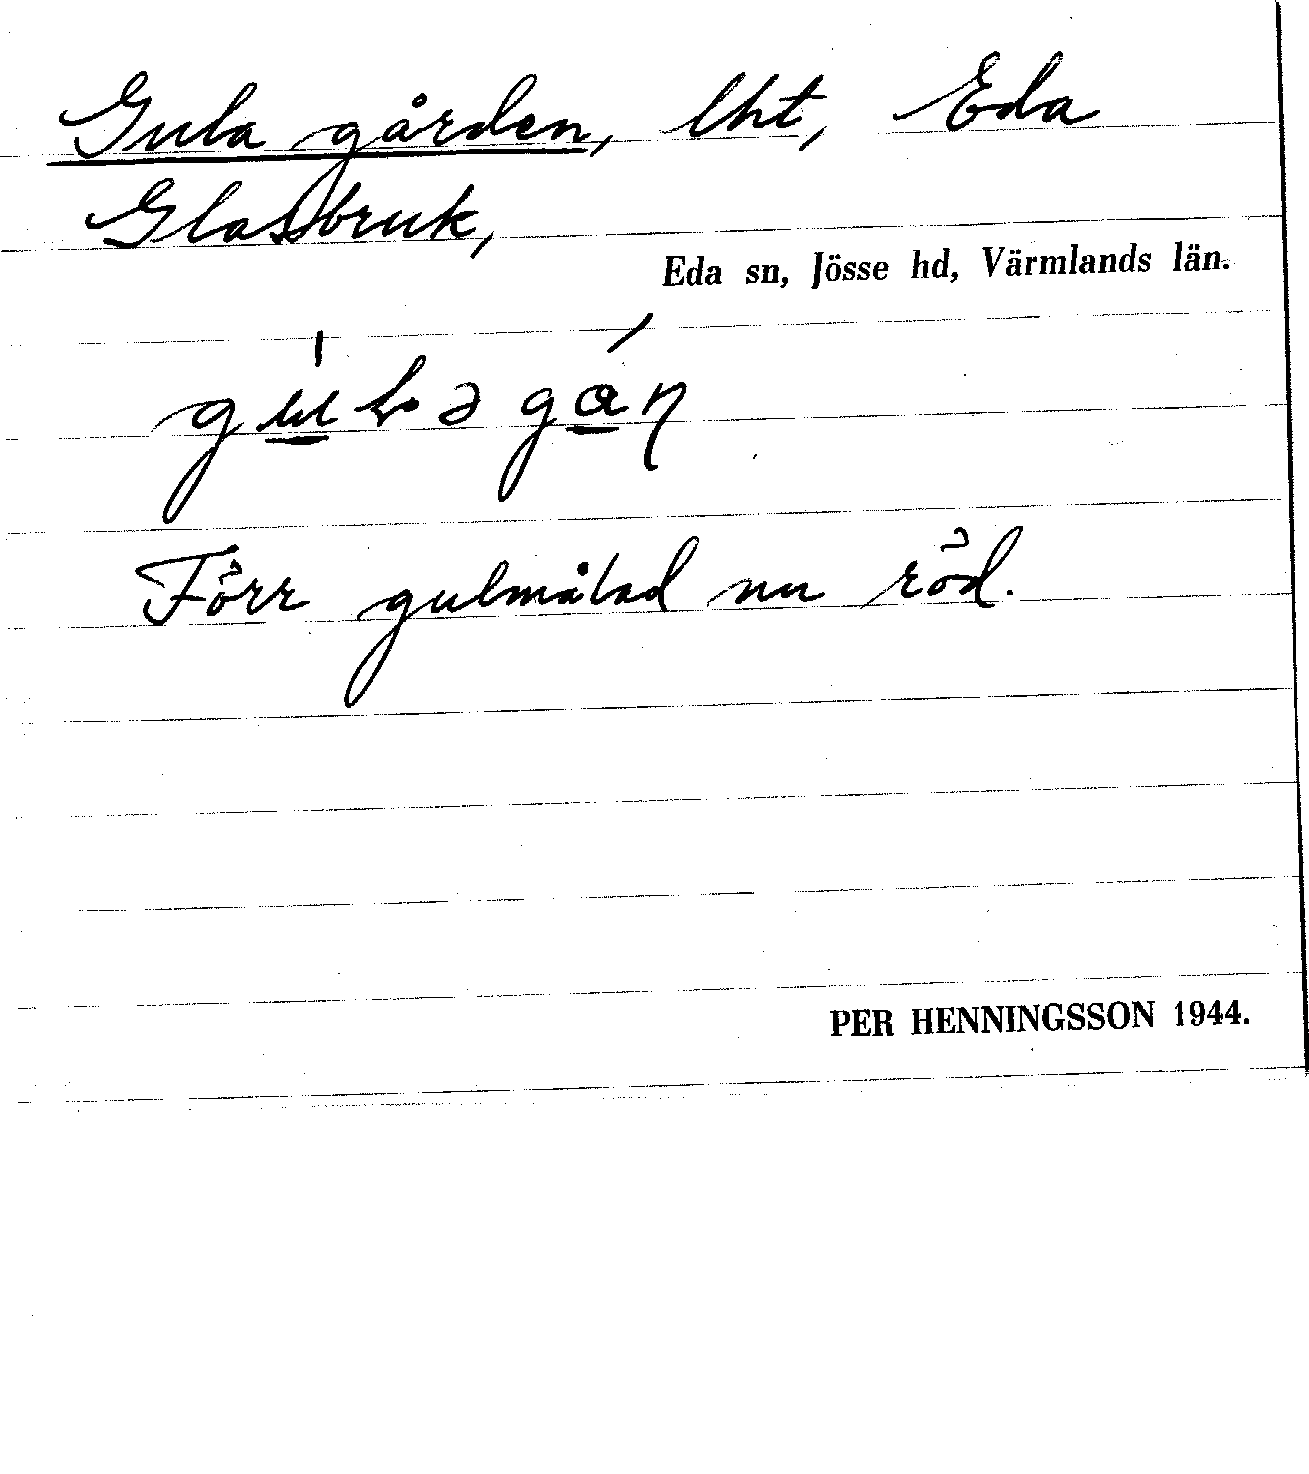 Gula gården, lht, Eda
Glasbruk,
Eda sn, Jösse hd, Värmlands län.
Förr gulmålad nu röd.
PER HENNINGSSON 1944.